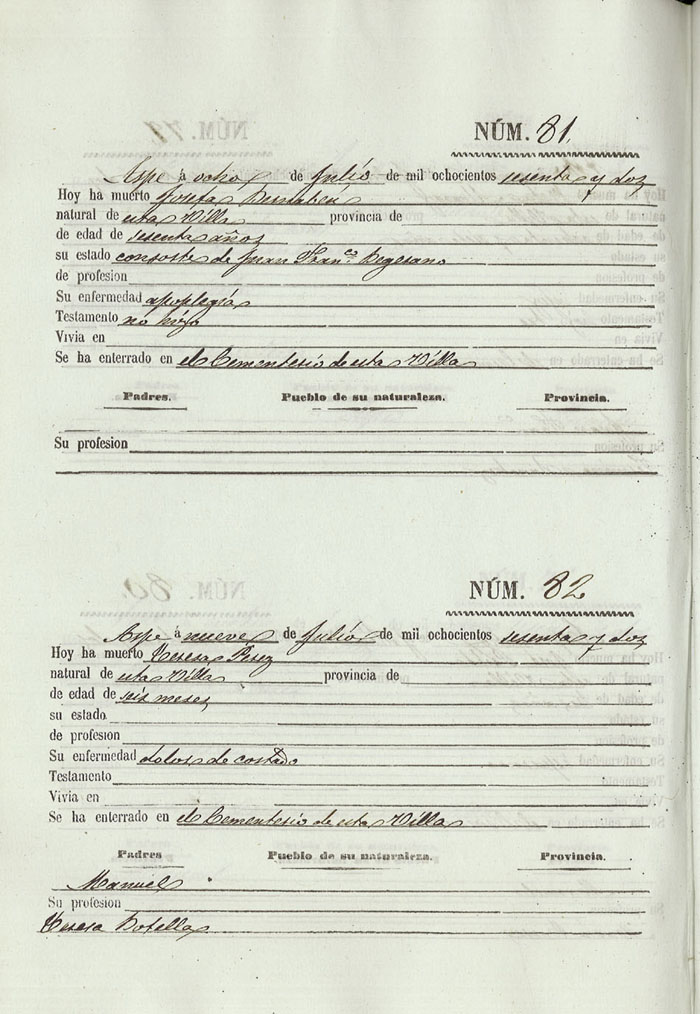 NÚM. 81.
Aspe á ocho de Julio de mil ochocientos sesenta y dos
Hoy ha muerto Josefa Bernabeu
natural de esta Villa provincia de
de edad de sesenta años
su estado consorte de Juan Fran.co
de profesion
Su enfermedad apoplegia
Testamento no hizo
Vivia en
Se ha enterrado en el Cementerio de esta Villa
Padres. Pueblo de su naturaleza. Provincia.
Su profesion
NÚM. 82
Aspe á nueve de Julio de mil ochocientos sesenta y dos
Hoy ha muerto Teresa Perez
natural de esta Villa provincia de
de edad de seis meses
su estado
de profesion
Su enfermedad dolor de costado
Testamento
Vivia en
Se ha enterrado en el Cementerio de esta Villa
Padres Pueblo de su naturaleza. Provincia.
Manuel
Su profesion
Teresa Botella